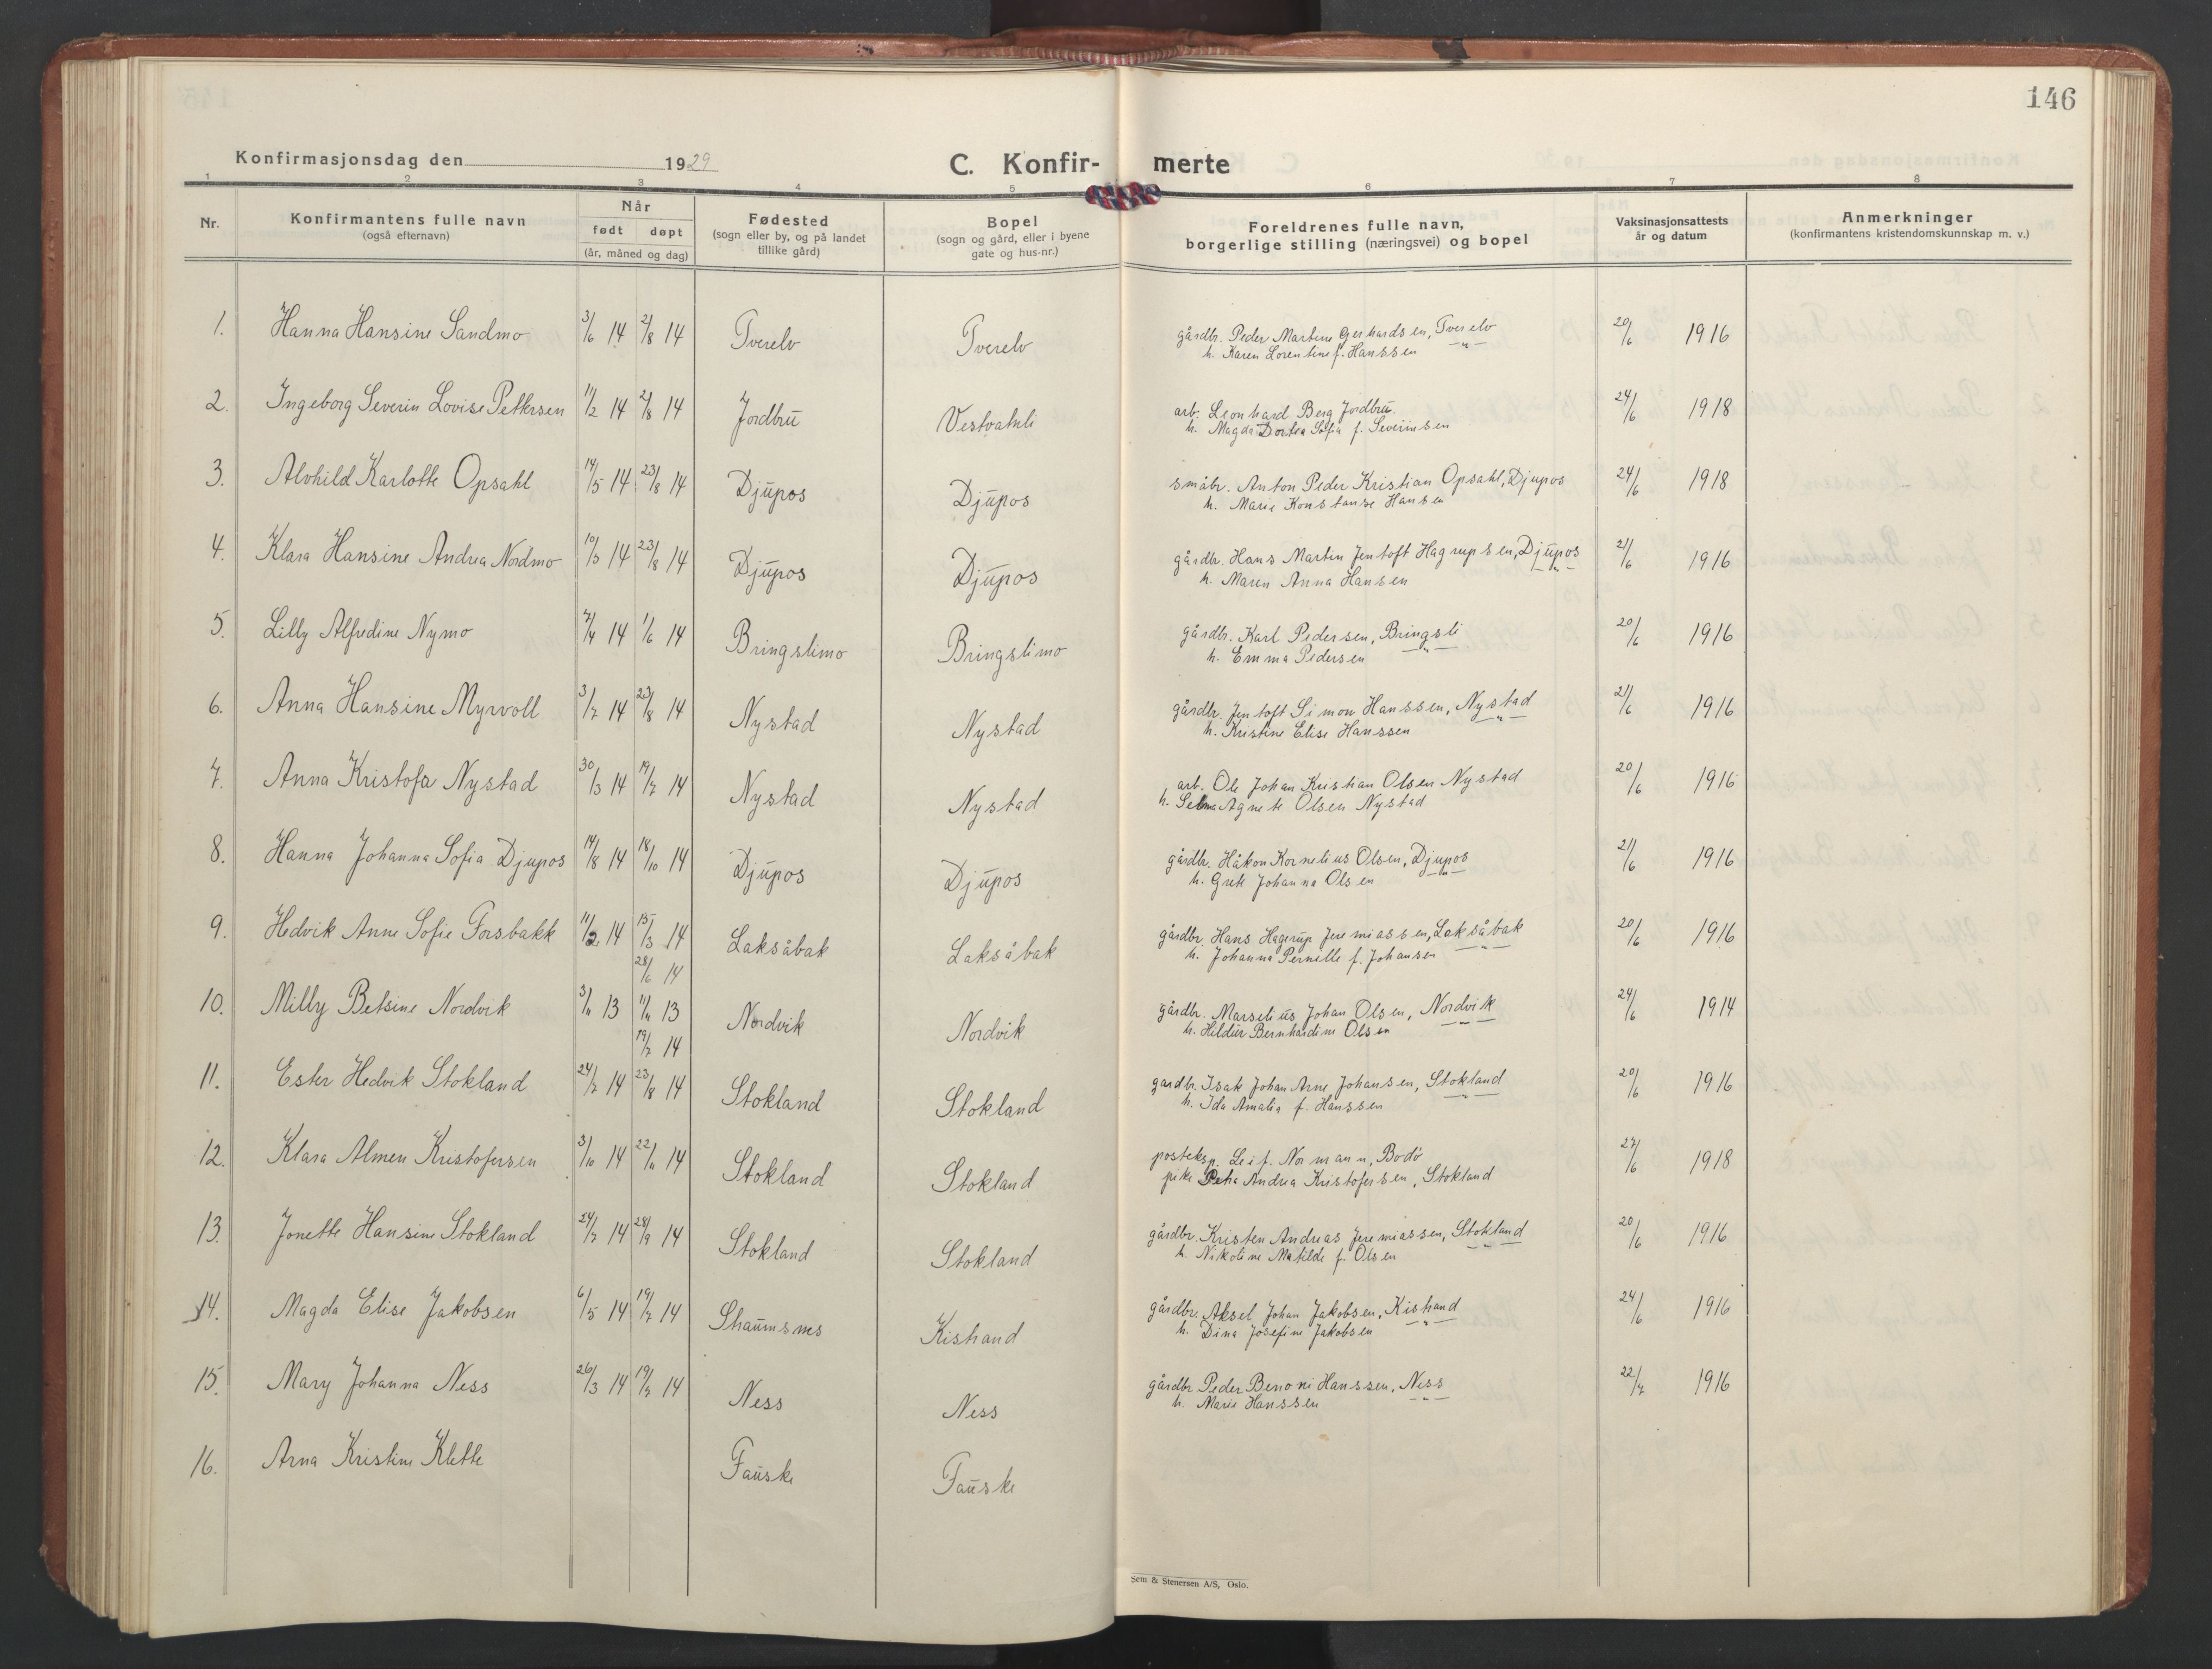 146
Konfirmasjonsdag den 1929
C. Konfir- merte
1 2 3 4 5 6 7 8
Nr.
Konfirmantens fulle navn
(også efternavn)
Når
født døpt
(år, måned og dag)
Fødested
(sogn eller by, og på landet
tillike gård)
Bopel
(sogn og gård, eller i byene
gate og hus-nr.)
Foreldrenes fulle navn,
borgerlige stilling (næringsvei) og bopel
Vaksinasjonsattests
år og datum
Anmerkninger
(konfirmantens kristendomskunnskap m. v.)
1. Hanna Hansine Sandmo 3/6 14 2/8 14 Tverelv Tverelv gårdbr. Peder Martin Gerhardsen, Tverelv 20/6 1916
h. Karen Lorentine f. Hanssen -"-
2. Ingeborg Severin Lovise Pettersen 11/2 14 2/8 14 Jordbru Vestvatnli arb. Leonhard Berg Jordbru. 24/6 1918
h. Magda Dortea Sofia f. Severinsen
3. Alvhild Karlotte Opsahl 14/5 14 23/8 14 Djupos Djupos småbr. Anton Peder Kristian Opsahl, Djupos 24/6 1918
h. Marie Konstanse Hansen
4. Klara Hansine Andrea Nordmo 10/3 14 23/8 14 Djupos Djupos gårdbr. Hans Martin Jentoft Hagrupsen, Djupos 21/6 1916
h. Maren Anna Hansen -"-
5. Lilly Alfredine Nymo 7/4 14 1/6 14 Bringslimo Bringslimo gårdbr. Karl Pedersen, Bringsli 20/6 1916
h. Emma Pedersen -"-
6. Anna Hansine Myrvoll 3/7 14 23/8 14 Nystad Nystad gårdbr. Jentoft Simon Hanssen, Nystad 21/6 1916
h. Kristine Elise Hanssen -"-
7. Anna Kristofa Nystad 30/3 14 19/7 14 Nystad Nystad arb. Ole Johan Kristian Olsen Nystad 20/6 1916
h. Selma Agnete Olsen Nystad
8. Hanna Johanna Sofia Djupos 14/8 14 18/10 14 Djupos Djupos gårdbr. Håkon Kornelius Olsen, Djupos 21/6 1916
h. Grete Johanna Olsen -"-
9. Hedvik Anne Sofie Forsbakk 11/2 14 15/3 14 Laksåbak Laksåbak gårdbr. Hans Hagerup Jeremiassen, Laksåbak 20/6 1916
28/6 14 h. Johanna Pernille f. Johansen -"-
10. Milly Betsine Nordvik 3/11 13 11/11 13 Nordvik Nordvik gårdbr. Marselius Johan Olsen, Nordvik 24/6 1914
19/7 14 h. Hildur Bernhardine Olsen -"-
11. Ester Hedvik Stokland 24/7 14 23/8 14 Stokland Stokland gardbr. Isak Johan Arne Johansen, Stokland 20/6 1916
h. Ida Amalia f. Hanssen -"-
12. Klara Almen Kristofersen 3/10 14 22/11 14 Stokland Stokland posteksp. Leif. Normann, Bodø 27/6 1918
pike Petra Andrea Kristofersen, Stokland
13. Jonette Hansine Stokland 24/7 14 28/9 14 Stokland Stokland gårdbr. Kristen Andreas Jeremiassen, Stokland 20/6 1916
h. Nikoline Matilde f. Olsen -"-
14. Magda Elise Jakobsen 6/5 14 19/7 14 Shaumsnes Kistrand gårdbr. Aksel Johan Jakobsen, Kistrand 24/6 1916
h. Dina Josefine Jakobsen -"-
15. Mary Johanna Ness 26/3 14 19/7 14 Ness Ness gårdbr. Peder Benoni Hanssen, Ness 22/7 1916
h. Marie Hanssen -"-
16. Arna Kristine Klette Fauske Fauske
Sem & Stenersen A/S, Oslo.